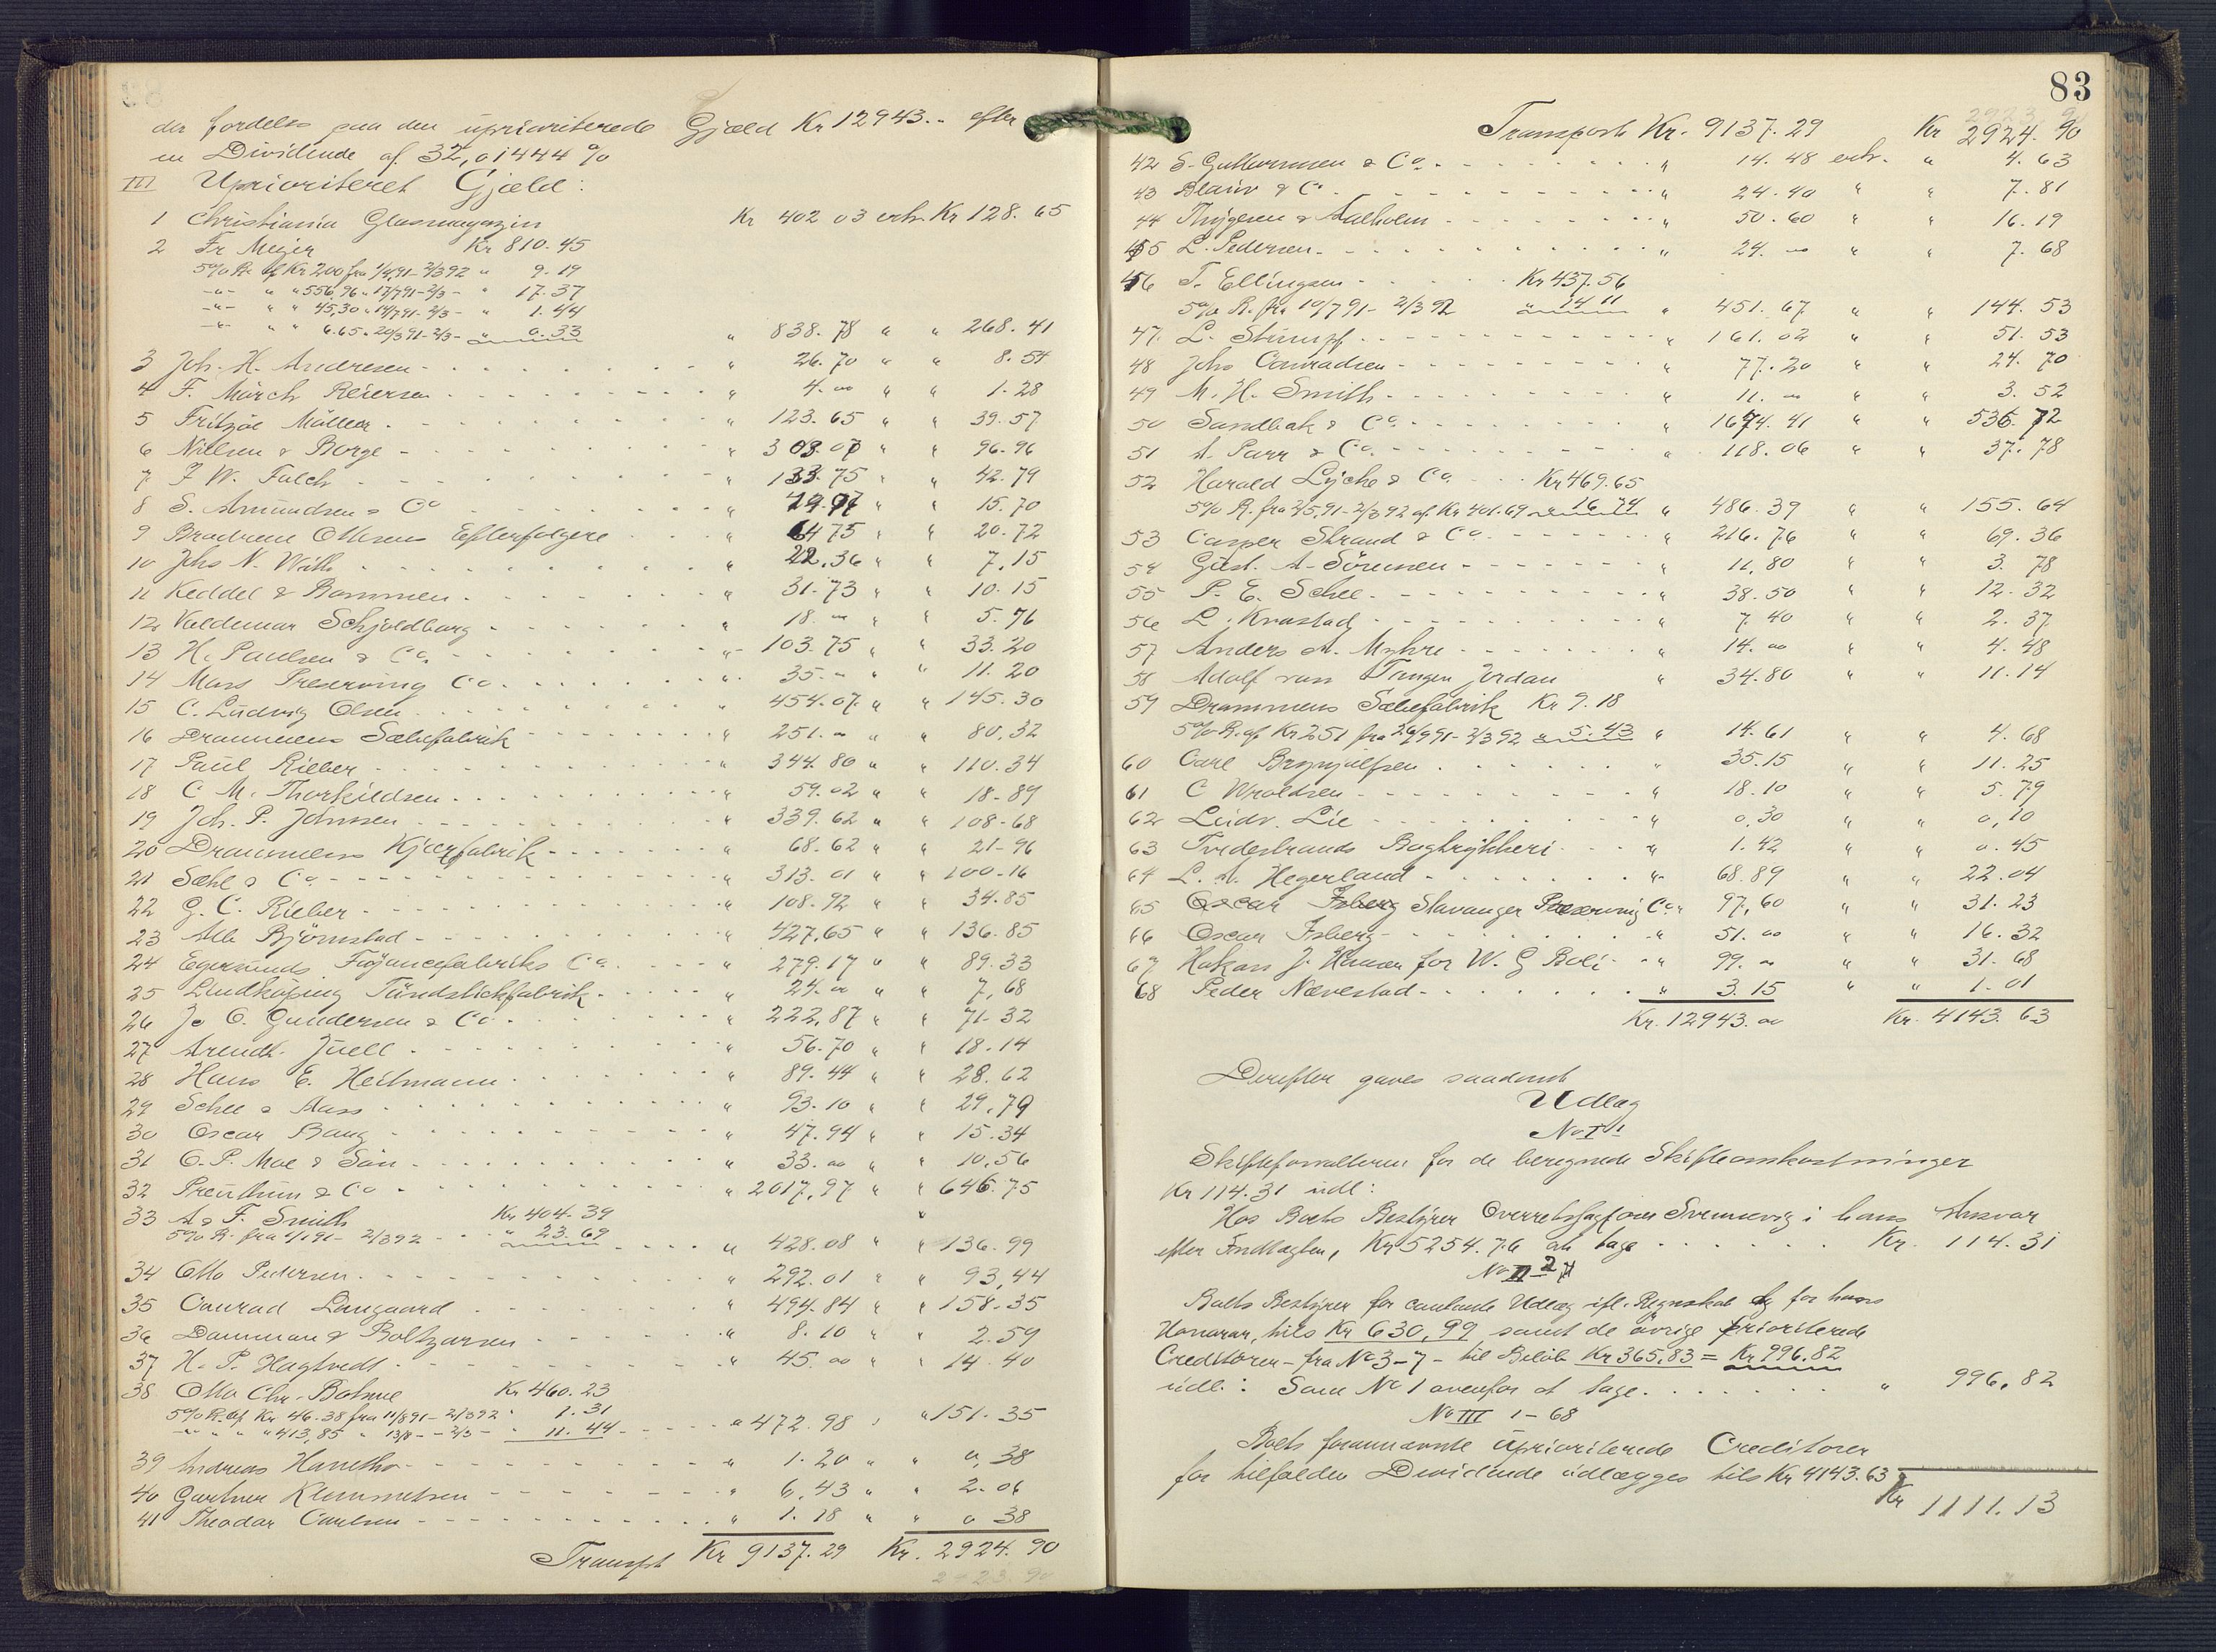 der fordeles paa den uprioriterede Gjæld Kr 12943.- efter
en Dividende af 32,01444 %
III Uprioriteret Gjæld:
1 Christiania Glasmagazin Kr 402 03 erh. Kr 128. 65
2 Fr Meyer Kr 810. 45
5% R. af Kr 200 fra 1/4 91 - 2/3 92 " 9. 19
-"- " " 556,96 " 17/7 91 - 2/3 - " 17. 37
-"- " " 45,30 " 14/7 91 - 2/3 - " 1. 44
-"- " " 6.65 " 20/3 91 - 2/3 - " 0. 33 " 838. 78 " " 268. 41
3 Joh. H. Andresen " 26. 70 " " 8. 54
4 F. Mørch Reiersen " 4. 00 " " 1. 28
5 Fritzöe Möller " 123. 65 " " 39. 57
6 Nielsen & Borge " 303. 07 " " 96. 96
7 F W. Falch " 133. 75 " " 42. 79
8 S. Amundsen & Co " 49. 07 " " 15. 70
9 Brødrene Ottesens Efterfølgere " 64 75 " " 20. 72
10 Johs N. With " 22. 36 " " 7. 15
11 Keddel & Bommen " 31. 73 " " 10. 15
12 Valdemar Schjoldborg " 18. " " " 5. 76
13 H. Paulsen & Co. " 103. 75 " " 33. 20
14 Moss Preserving Co. " 35. - " " 11. 20
15 C. Ludvig Olsen " 454. 07 " " 145. 30
16 Drammens Sæbefabrik " 251. - " " 80. 32
17 Paul Rieber " 344. 80 " " 110. 34
18 C M. Thorkildsen " 59. 02 " " 18. 89
19 Joh. P. Johnsen " 339. 62 " " 108. 68
20 Drammens Kjæxfabrik " 68. 62 " " 21. 96
21 Sæhl & Co. " 313. 01 " " 100. 16
22 G. C. Rieber " 108. 92 " " 34. 85
23 Alb Bjørnstad " 427. 65 " " 136. 85
24 Egersunds Fayancefabriks Co. " 279. 17 " " 89. 33
25 Lindköping Tändstickfabrik " 24. 00 " " 7. 68
26 J. O. Gundersen & Co. " 222. 87 " " 71. 32
27 Arendt. Juell " 56. 70 " " 18. 14
28 Hans E. Heitmann " 89. 44 " " 28. 62
29 Schee & Aass " 93. 10 " " 29. 79
30 Oscar Bang " 47. 94 " " 15. 34
31 O. P. Moe & Sön " 33. 00 " " 10. 56
32 Preuthun & Co " 2017, 97 " " 646. 75
33 A & F. Smith Kr 404. 39
5% R. fra 1/1 91 - 2/3 92 " 23. 69 " 428. 08 " " 136. 99
34 Otto Pedersen " 292. 01 " " 93, 44
35 Conrad Langaard " 494. 84 " " 158. 35
36 Damman & Boltzarsen " 8. 10 " " 2. 59
37 H. P. Hagtvedt " 45. 00 " " 14. 40
38 Otto Chr. Bohnne Kr 460. 23
5% R. af Kr 46.38 fra 11/8 91 - 2/3 92 " 1. 31
-"- " " " 413,85 " 13/8 - - 2/3 - " 11. 44 " 472. 98 " " 151. 35
39 Andreas Hanetho " 1. 20 " " 0, 38
40 Gartner Klemmetsen " 6. 43 " " 2. 06
41 Theodor Carlsen " 1. 18 " " 0 38
Transpt Kr 9137. 29 Kr. 2924. 90
2923. 90
83
Transport Kr. 9137. 29 Kr 2924. 90
42 S. Guttormsen & Co. " 14. 48 erh. " 4. 63
43 Blauw & Co " 24. 40 " " 7. 81
44 Thygesen & Aalholm " 50. 60 " " 16. 19
45 L. Pedersen " 24. 00 " " 7. 68
46 T. Ellingsen Kr 437. 56
5% R. fra 10/7 91 - 2/3 92 " 14 11 " 451. 67 " " 144. 53
47. L. Stumpf " 161. 02 " " 51. 53
48 Johs Conradsen " 77. 20 " " 24. 70
49 M. H. Smith " 11. 00 " " 3. 52
50 Sandbak & Co. " 1674. 41 " " 536. 72
51 A. Parr & Co. " 118. 06 " " 37. 78
52 Harald Lyche & Co. Kr 469. 65
5% R. fra 2/5 91 - 2/3 92 af Kr 401.69 " 16 74 " 486. 39 " " 155. 64
53 Casper Strand & Co. " 216. 76 " " 69. 36
54 Gust. A. Sörensen " 11. 80 " " 3. 78
55 P. E. Schee " 38. 50 " " 12. 32
56 L. Knastad " 7. 40 " " 2. 37
57 Anders A. Myhre " 14. 00 " " 4. 48
58 Adolf van Tangen Jordan " 34. 80 " " 11. 14
59 Drammens Sæbefabrik Kr 9. 18
5% R. af Kr 251 fra 26/9 91 - 2/3 92 " 5. 43 " 14. 61 " " 4. 68
60 Carl Brynjulfsen " 35. 15 " " 11. 25
61 C Wroldsen " 18. 10 " " 5. 79
62 Ludv. Lie " 0, 30 " " 0, 10
63 Tvedestrands Bogtrykkeri " 1. 42 " " 0. 45
64 L. A. Hegerland " 68. 89 " " 22. 04
65 Oscar Isberg Stavanger Preserving Co " 97, 60 " " 31. 23
66 Oscar Isberg " 51. 00 " " 16. 32
67 Hakon J. Hansen for W. G Boli " 99. " " " 31. 68
68 Peder Nævestad " 3. 15 " " 1. 01
Kr. 12943. 00 Kr. 4143. 63
Derefter gaves saadant
Udlæg
No I 1
Skifteforvalteren for de beregnede Skifteomkostninger
Kr 114. 31 udl:
Hos Boets Bestyrer Overretssagfører Svennevig i hans Ansvar
efter Indtægten, Kr 5254. 76 at tage Kr. 114. 31
No II 2 - 7
Boets Bestyrer for contante Udlæg ifl. Regnskab og for hans
Honorar, tils Kr 630, 99 samt de øvrige prioriterede
Creditorer - fra No 3 - 7 - til Beløb Kr 365. 83 = Kr 996. 82
udl.: Som No 1 ovenfor at tage. " 996, 82
No III 1 - 68
Boets forannævnte uprioriterede Creditorer
for tilfalden Dividende udlægges tils Kr 4143. 63
Kr 1111. 13